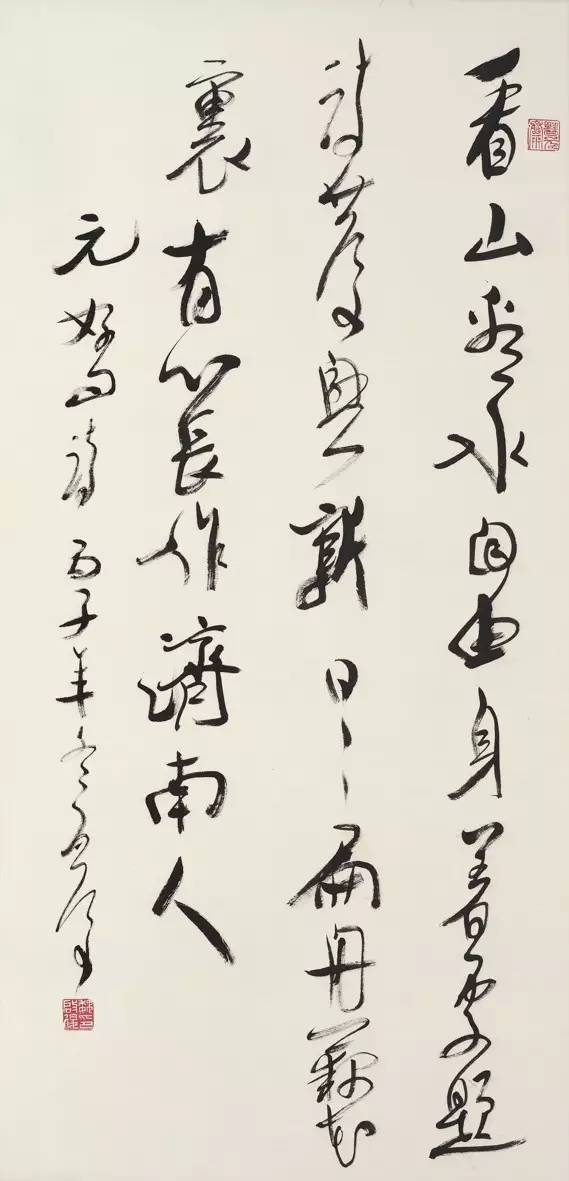 看山看水自由身着處題
詩發興新日〻扁舟藕花
裏有心長作濟南人
元好問詩 丙子年冬 啟後